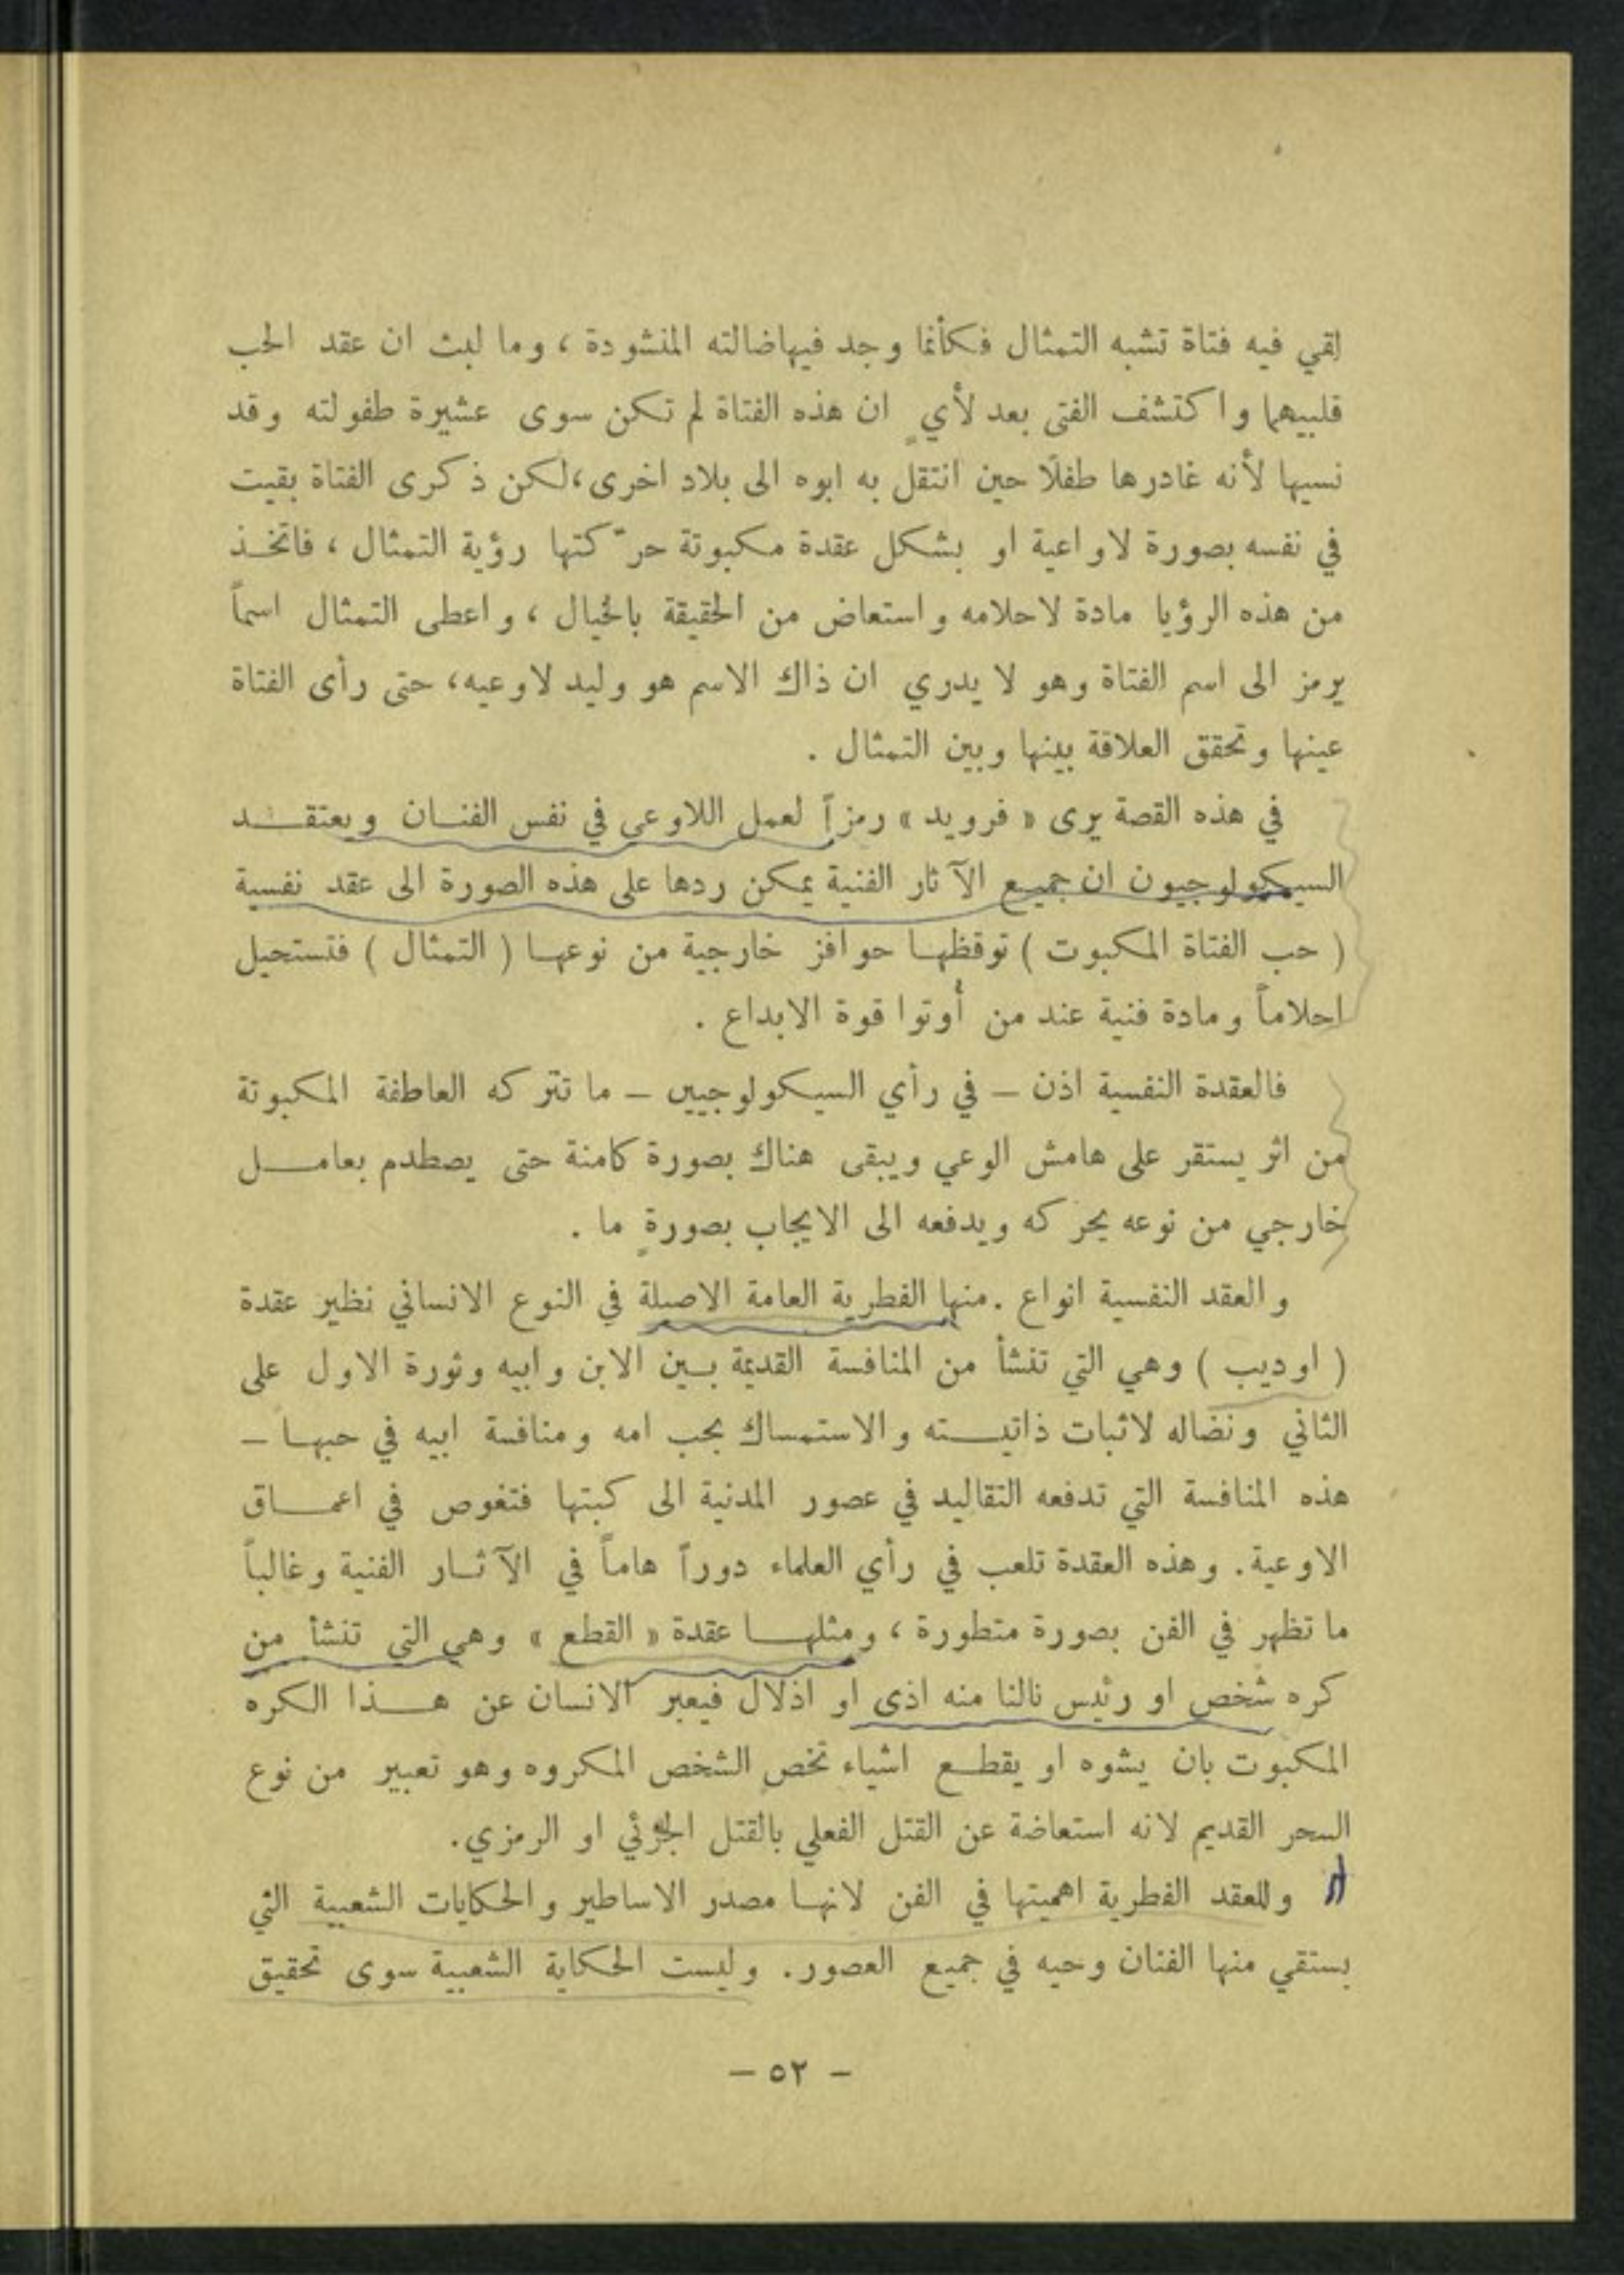 لقي فيه فتاة تشبه التمثال فكأنما وجد فيهاضالته المنشودة ، وما لبث ان عقد الحب
قلبيهما واكتشف الفتى بعد لأيٍ ان هذه الفتاة لم تكن سوى عشيرة طفولته وقد
نسيها لأنه غادرها طفلًا حين انتقل به ابوه الى بلاد اخرى ،لكن ذكرى الفتاة بقيت
في نفسه بصورة لاواعية او بشكل عقدة مكبوتة حرّكتها رؤية التمثال ، فاتخـذ
من هذه الرؤيا مادة لاحلامه واستعاض من الحقيقة بالخيال ، واعطى التمثال اسماً
يرمز الى اسم الفتاة وهو لا يدري ان ذاك الاسم هو وليد لاوعيه، حتى رأى الفتاة
عينها وتحقق العلاقة بينها وبين التمثال .
في هذه القصة يرى « فرويد » رمزاً لعمل اللاوعي في نفس الفنـان ويعتقـــد
السيكولوجيون ان جميـع الآثار الفنية يمكن ردها على هذه الصورة الى عقد نفسية
( حب الفتاة المكبوت ) توقظهـا حوافز خارجية من نوعهـا ( التمثال ) فتستحيل
احلاماً ومادة فنية عند من أوتوا قوة الابداع .
فالعقدة النفسية اذن – في رأي السيكولوجيين – ما تتركه العاطفة المكبوتة
من اثر يستقر على هامش الوعي ويبقى هناك بصورة كامنة حتى يصطدم بعامـــل
خارجي من نوعه يحركه ويدفعه الى الايجاب بصورةٍ ما .
والعقد النفسية انواع . منها الفطرية العامة الاصيلة في النوع الانساني نظير عقدة
( اوديب ) وهي التي تنشأ من المنافسة القديمة بـين الابن وابيه وثورة الاول على
الثاني ونضاله لاثبات ذاتيـــته والاستمساك بحب امه ومنافسة ابيه في حبهـا –
هذه المنافسة التي تدفعه التقاليد في عصور المدنية الى كبتها فتغوص في اعمـــاق
الاوعية. وهذه العقدة تلعب في رأي العلماء دوراً هاماً في الآثـار الفنية وغالباً
ما تظهر في الفن بصورة متطورة ، ومثلهـــا عقدة « القطع » وهي التي تنشأ من
كره شخص او رئيس نالنا منه اذى او اذلال فيعبر الانسان عن هـــذا الكره
المكبوت بان يشوه او يقطـع اشياء تخص الشخص المكروه وهو تعبير من نوع
السحر القديم لانه استعاضة عن القتل الفعلي بالقتل الجزئي او الرمزي.
وللعقد الفطرية اهميتها في الفن لانهـا مصدر الاساطير والحكايات الشعبية التي
يستقي منها الفنان وحيه في جميع العصور. وليست الحكاية الشعبية سوى تحقيق
– ٥٢ –